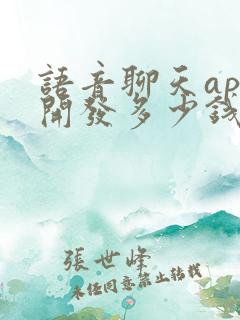 語音聊天ap
開發多少錢
張世峰
未经同意禁止转载